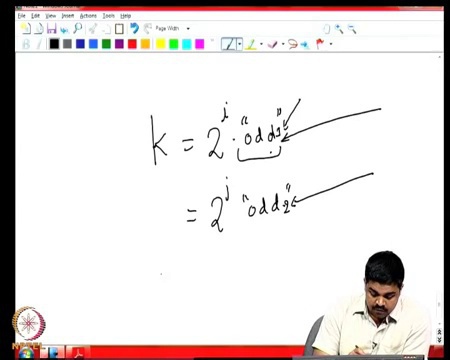 File Edit View Insert Actions Tools Help
Page Width
k = 2^i · "odd1"
= 2^j "odd2"